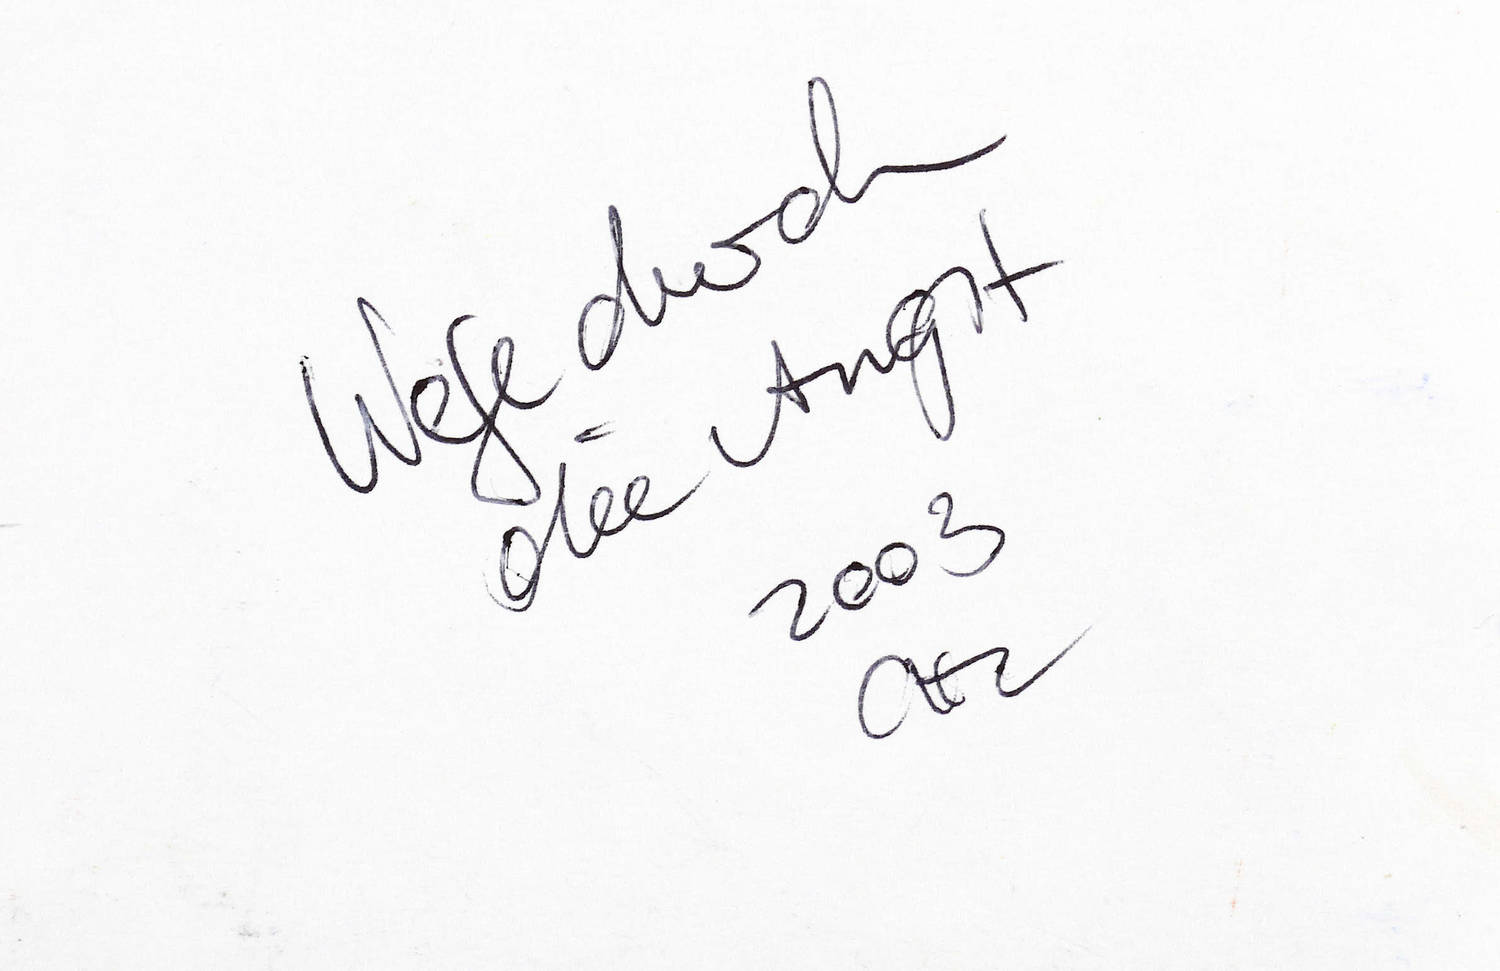 Wege durch
die Angst
2003